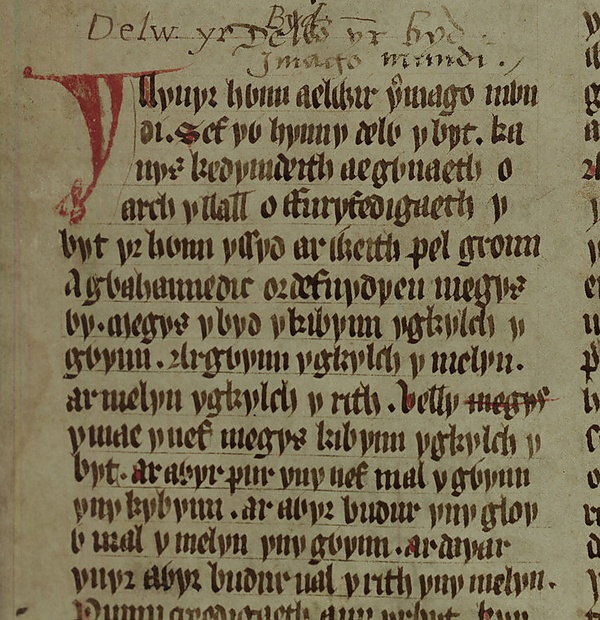 Delw yr Byd
Delw yr byd
Imago mundi.
Yllyuyr hwnn aelwir ymago mwn
di. Sef yw hynny delw y byt. ka
nys kedymdeith aegwnaeth o
arch yllall o ffuryfedigaeth y
byt yr hwnn yssyd ar weith pel gronn
A gwahannedic ordefnydyeu megys
wy. Megys y byd y kibynn ygkylch y
gwynn. Ar gwynn ygkylch y melyn.
ar melyn ygkylch y rith. velly megys
ymae y nef megys kibynn ygkylch y
byt. ar awyr pur yny nef mal y gwynn
yny kybynn. ar awyr budur yny gloy
w mal y melyn yny gwynn. ar dayar
ynyr awyr budur ual y rith yny melyn.